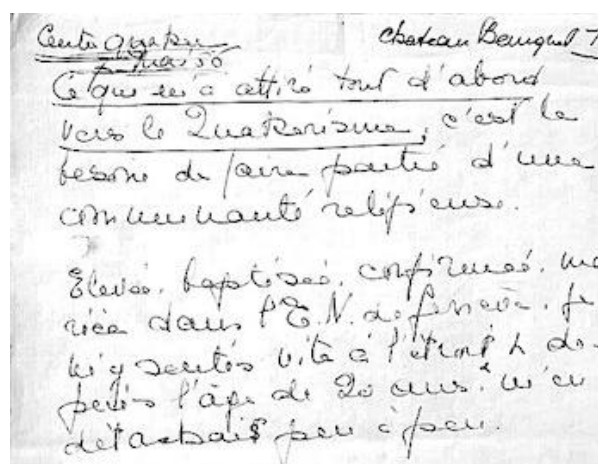 Centre quaker château Benquet
mai 50
Ce qui m'a attiré tout d'abord
vers le Quakerisme, c'est le
besoin de faire partie d'une
communauté religieuse.
Elevée, baptisée, confirmée, ma
riée dans l'E.N. de Genève. je
m'y sentis vite à l'étroit & de-
puis l'âge de 20 ans m'en
détachais peu à peu.